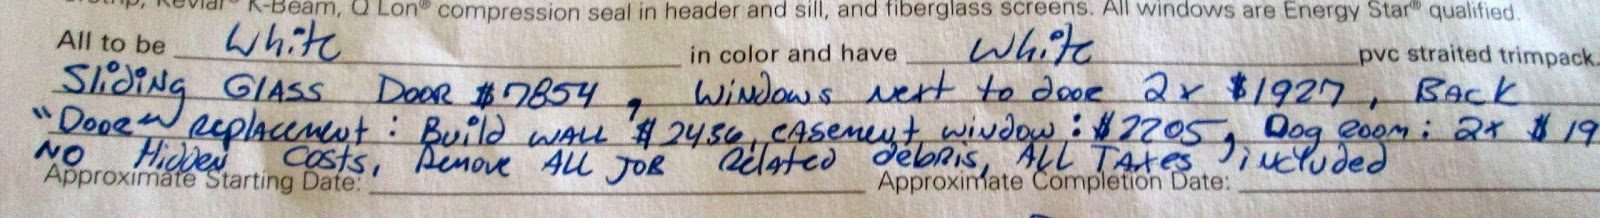 Kevlar® K-Beam, Q Lon® compression seal in header and sill, and fiberglass screens. All windows are Energy Star® qualified.
All to be White in color and have White pvc straited trimpack.
Sliding GLASS DOOR $7854, Windows next to door 2x $1927, BACK
"Door" replacement: Build WALL $2456, CASEMENT window: $2205, Dog room: 2x $19
NO Hidden Costs, Remove ALL JOB Related debris, ALL TAXES included
Approximate Starting Date: Approximate Completion Date: